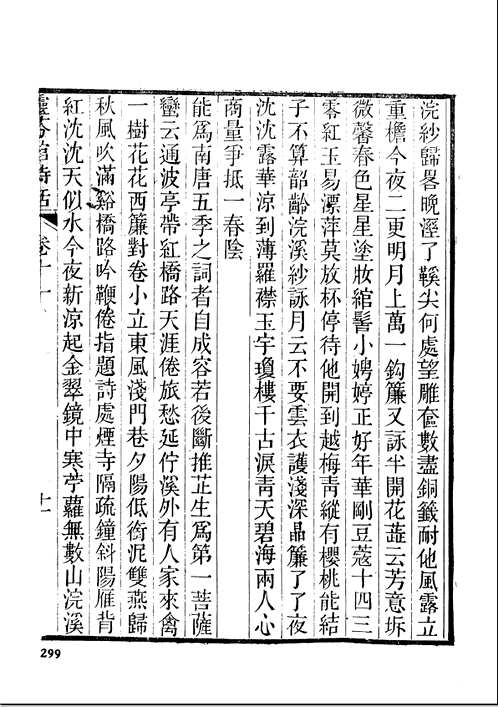 浣紗歸畧晚溼了鞵尖何處望雕奩數盡銅籤耐他風露立
重檐今夜二更明月上萬一鈎簾又詠半開花蘂云芳意坼
微馨春色星星塗妝綰髻小娉婷正好年華剛豆蔻十四三
零紅玉易漂萍莫放杯停待他開到越梅靑縱有櫻桃能結
子不算韶齡浣溪紗詠月云不要雲衣護淺深晶簾了了夜
沈沈露華涼到薄羅襟玉宇瓊樓千古淚靑天碧海兩人心
商量爭抵一春陰
能爲南唐五季之詞者自成容若後斷推芷生爲第一菩薩
蠻云通波亭帶紅橋路天涯倦旅愁延佇溪外有人家來禽
一樹花花西簾對卷小立東風淺門巷夕陽低銜泥雙燕歸
秋風吹滿谿橋路吟鞭倦指題詩處煙寺隔疏鐘斜陽雁背
紅沈沈天似水今夜新涼起金翠鏡中寒苧蘿無數山浣溪
靈芬館詩話 卷十 十一
299